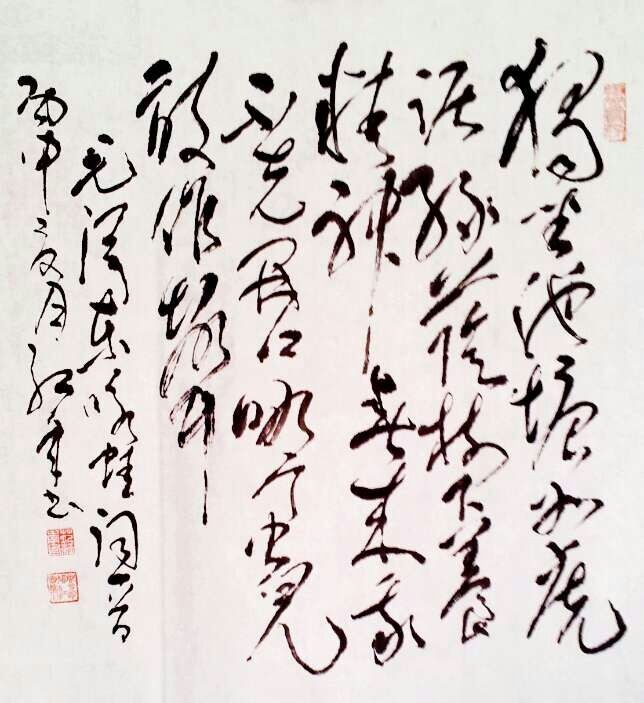 獨坐池塘如虎
踞綠蔭樹下養
精神春来我
不先開口哪个虫兒
敢作聲
毛澤東咏蛙詞一首
丙申夏月书